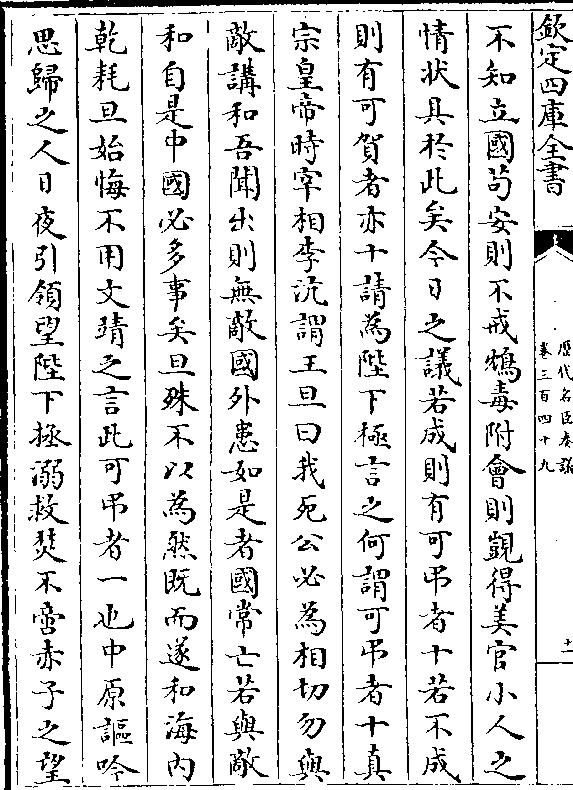 欽定四庫全書
歷代名臣奏議
卷三百四十九
十一
不知立國茍安則不戒鴆毒附會則覬得美官小人之
情狀具於此矣今日之議若成則有可弔者十若不成
則有可賀者亦十請為陛下極言之何謂可弔者十真
宗皇帝時宰相李沆謂王旦曰我死公必為相切勿與
敵講和吾聞出則無敵國外患如是者國常亡若與敵
和自是中國必多事矣旦殊不以為然既而遂和海内
乾耗旦始悔不用文靖之言此可弔者一也中原謳吟
思歸之人日夜引領望陛下拯溺救焚不啻赤子之望